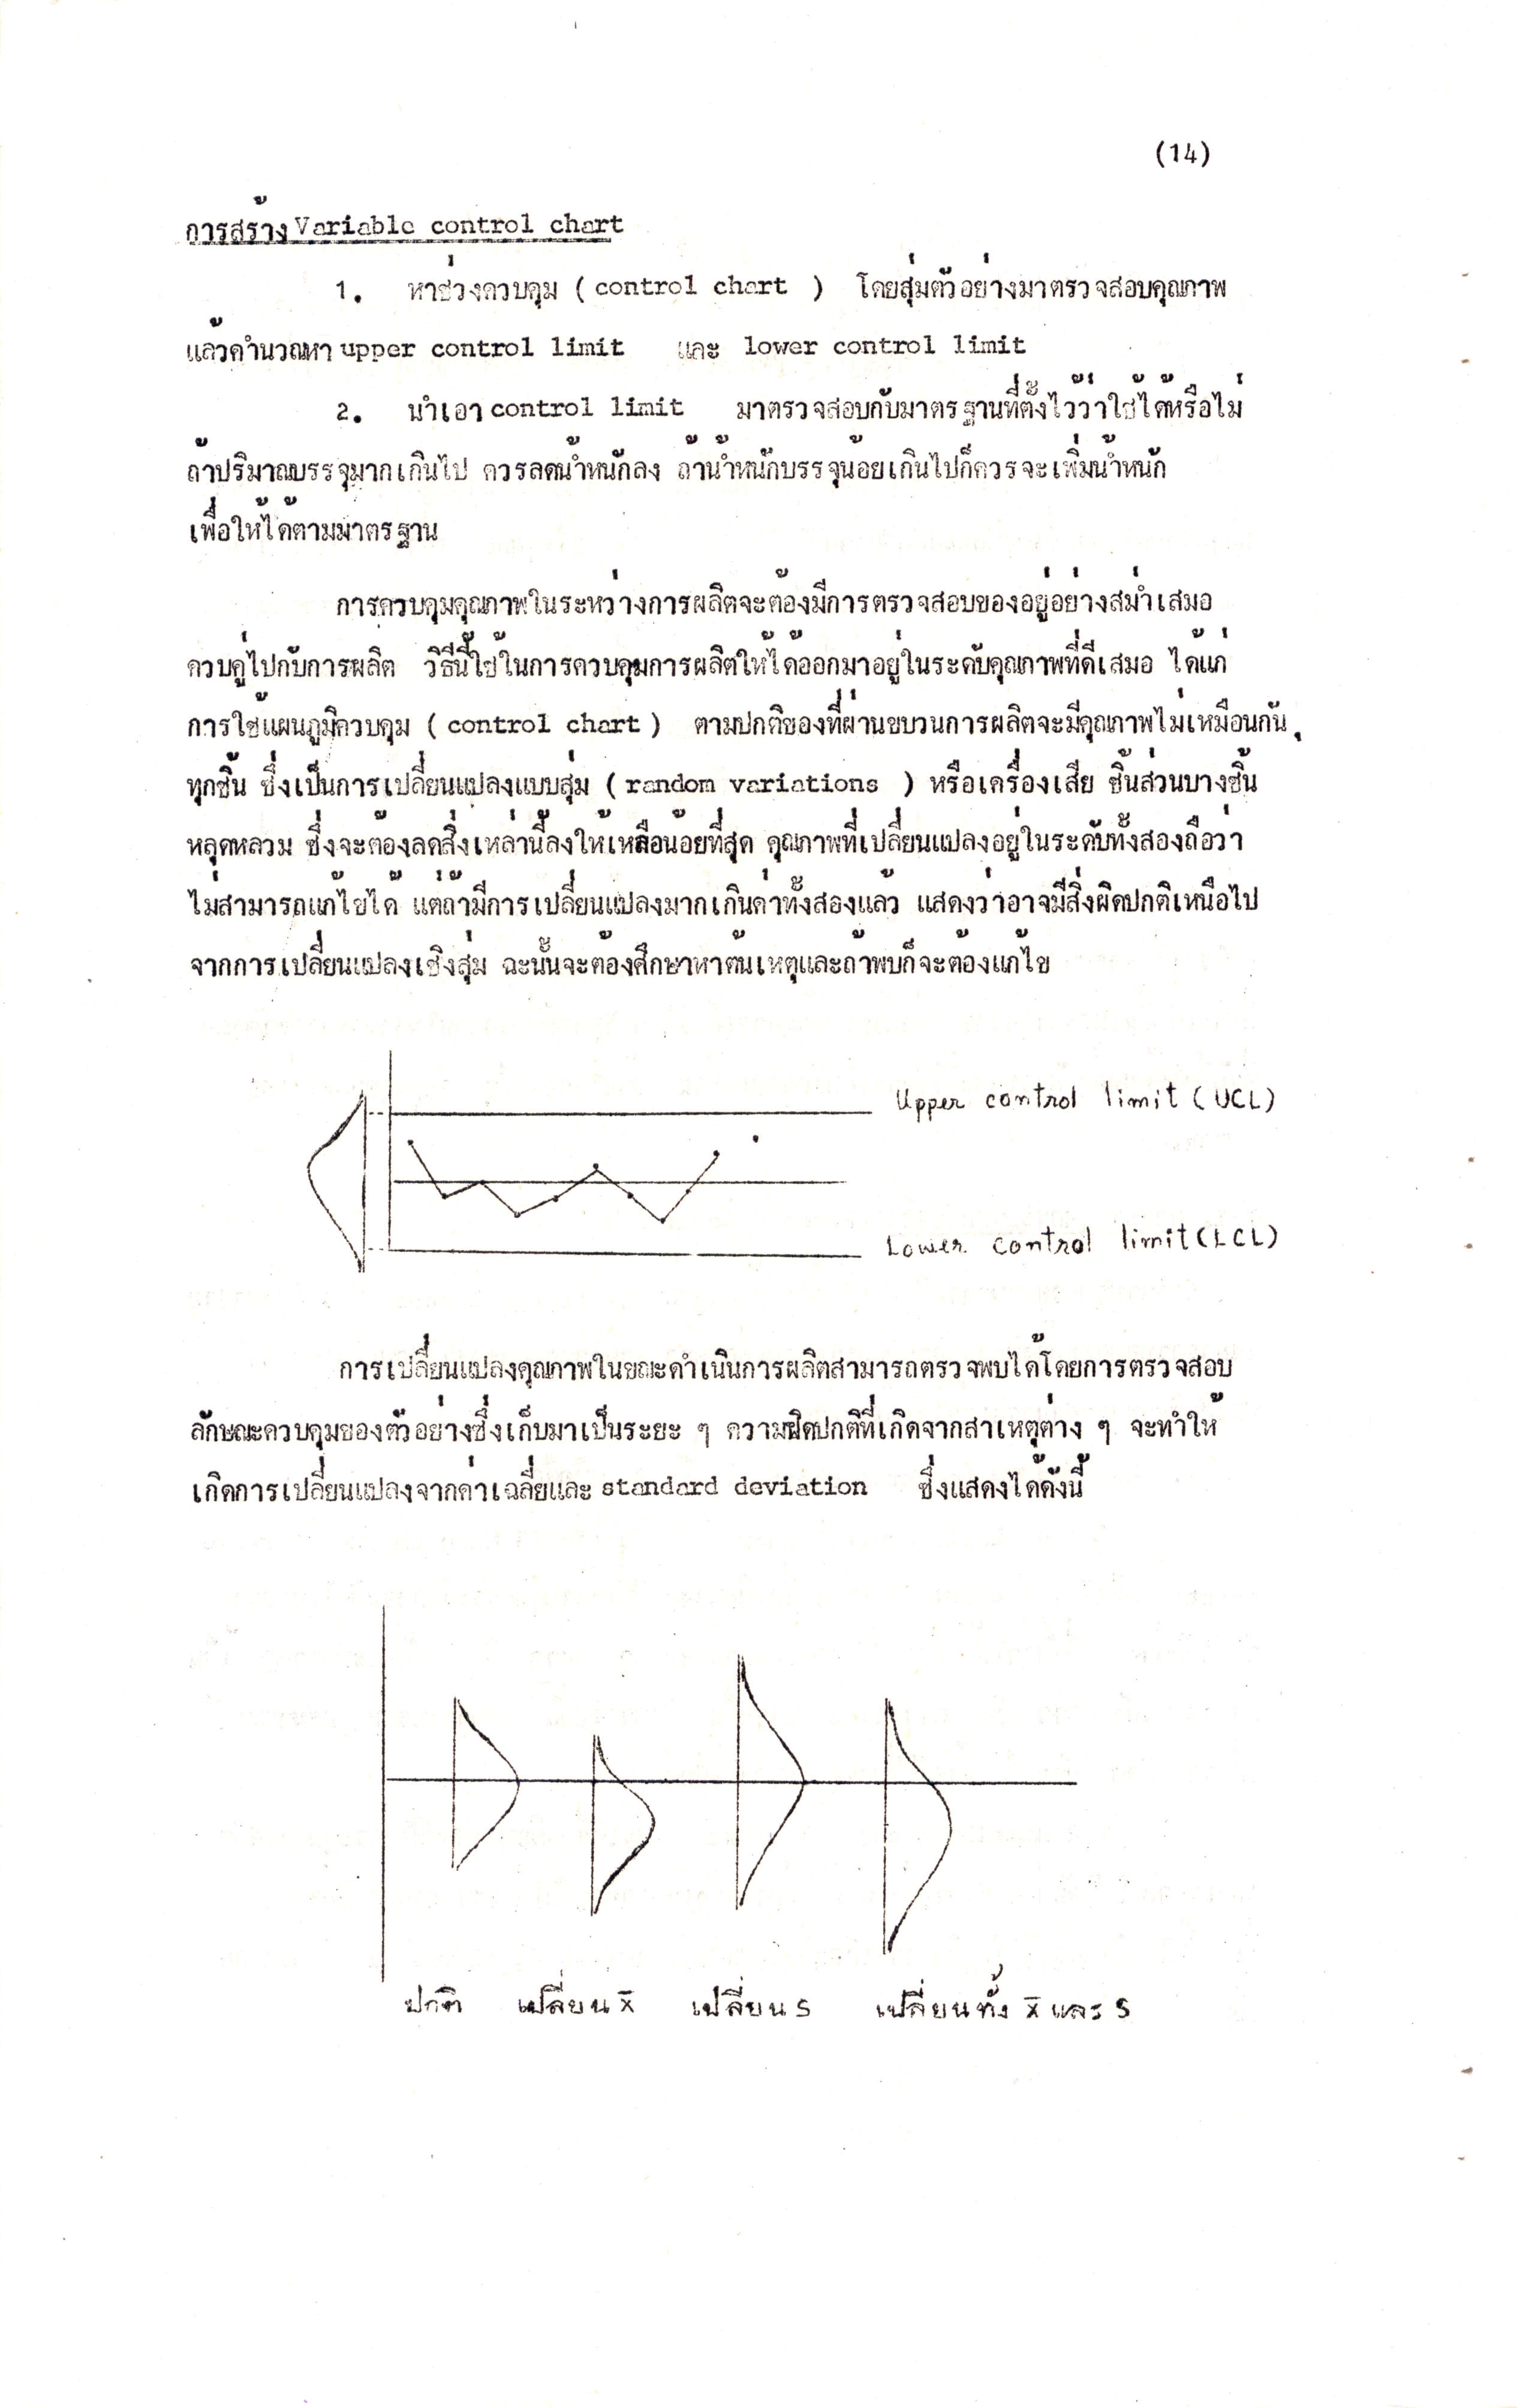 (14)
การสร้าง Variable control chart
1. หาช่วงควบคุม ( control chart ) โดยสุ่มตัวอย่างมาตรวจสอบคุณภาพ
แล้วคำนวณหา upper control limit และ lower control limit
2. นำเอา control limit มาตรวจสอบกับมาตรฐานที่ตั้งไว้ว่าใช้ได้หรือไม่
ถ้าปริมาณบรรจุมากเกินไป ควรลดน้ำหนักลง ถ้าน้ำหนักบรรจุน้อยเกินไปก็ควรจะเพิ่มน้ำหนัก
เพื่อให้ได้ตามมาตรฐาน
การควบคุมคุณภาพในระหว่างการผลิตจะต้องมีการตรวจสอบของอยู่อย่างสม่ำเสมอ
ควบคู่ไปกับการผลิต วิธีนี้ใช้ในการควบคุมการผลิตให้ได้ออกมาอยู่ในระดับคุณภาพที่ดีเสมอ ได้แก่
การใช้แผนภูมิควบคุม ( control chart ) ตามปกติของที่ผ่านขบวนการผลิตจะมีคุณภาพไม่เหมือนกัน
ทุกชิ้น ซึ่งเป็นการเปลี่ยนแปลงแบบสุ่ม ( random variations ) หรือเครื่องเสีย ชิ้นส่วนบางชิ้น
หลุดหลวม ซึ่งจะต้องลดสิ่งเหล่านี้ลงให้เหลือน้อยที่สุด คุณภาพที่เปลี่ยนแปลงอยู่ในระดับทั้งสองถือว่า
ไม่สามารถแก้ไขได้ แต่ถ้ามีการเปลี่ยนแปลงมากเกินค่าทั้งสองแล้ว แสดงว่าอาจมีสิ่งผิดปกติเหนือไป
จากการเปลี่ยนแปลงเชิงสุ่ม ฉะนั้นจะต้องศึกษาหาต้นเหตุและถ้าพบก็จะต้องแก้ไข
Upper control limit (UCL)
Lower control limit (LCL)
การเปลี่ยนแปลงคุณภาพในขณะดำเนินการผลิตสามารถตรวจพบได้โดยการตรวจสอบ
ลักษณะควบคุมของตัวอย่างซึ่งเก็บมาเป็นระยะ ๆ ความผิดปกติที่เกิดจากสาเหตุต่าง ๆ จะทำให้
เกิดการเปลี่ยนแปลงจากค่าเฉลี่ยและ standard deviation ซึ่งแสดงได้ดังนี้
ปกติ เปลี่ยน x̄ เปลี่ยน s เปลี่ยนทั้ง x̄ และ s